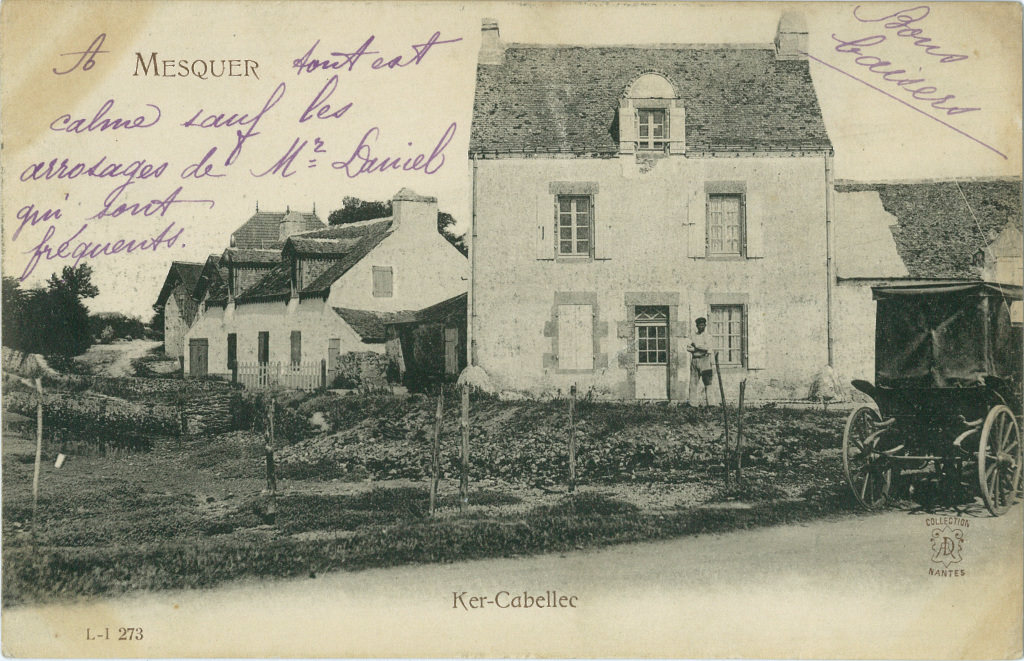 À MESQUER tout est
calme sauf les
arrosages de Mr Daniel
qui sont
fréquents.
Bons
baisers
COLLECTION
DR
NANTES
Ker-Cabellec
L-I 273